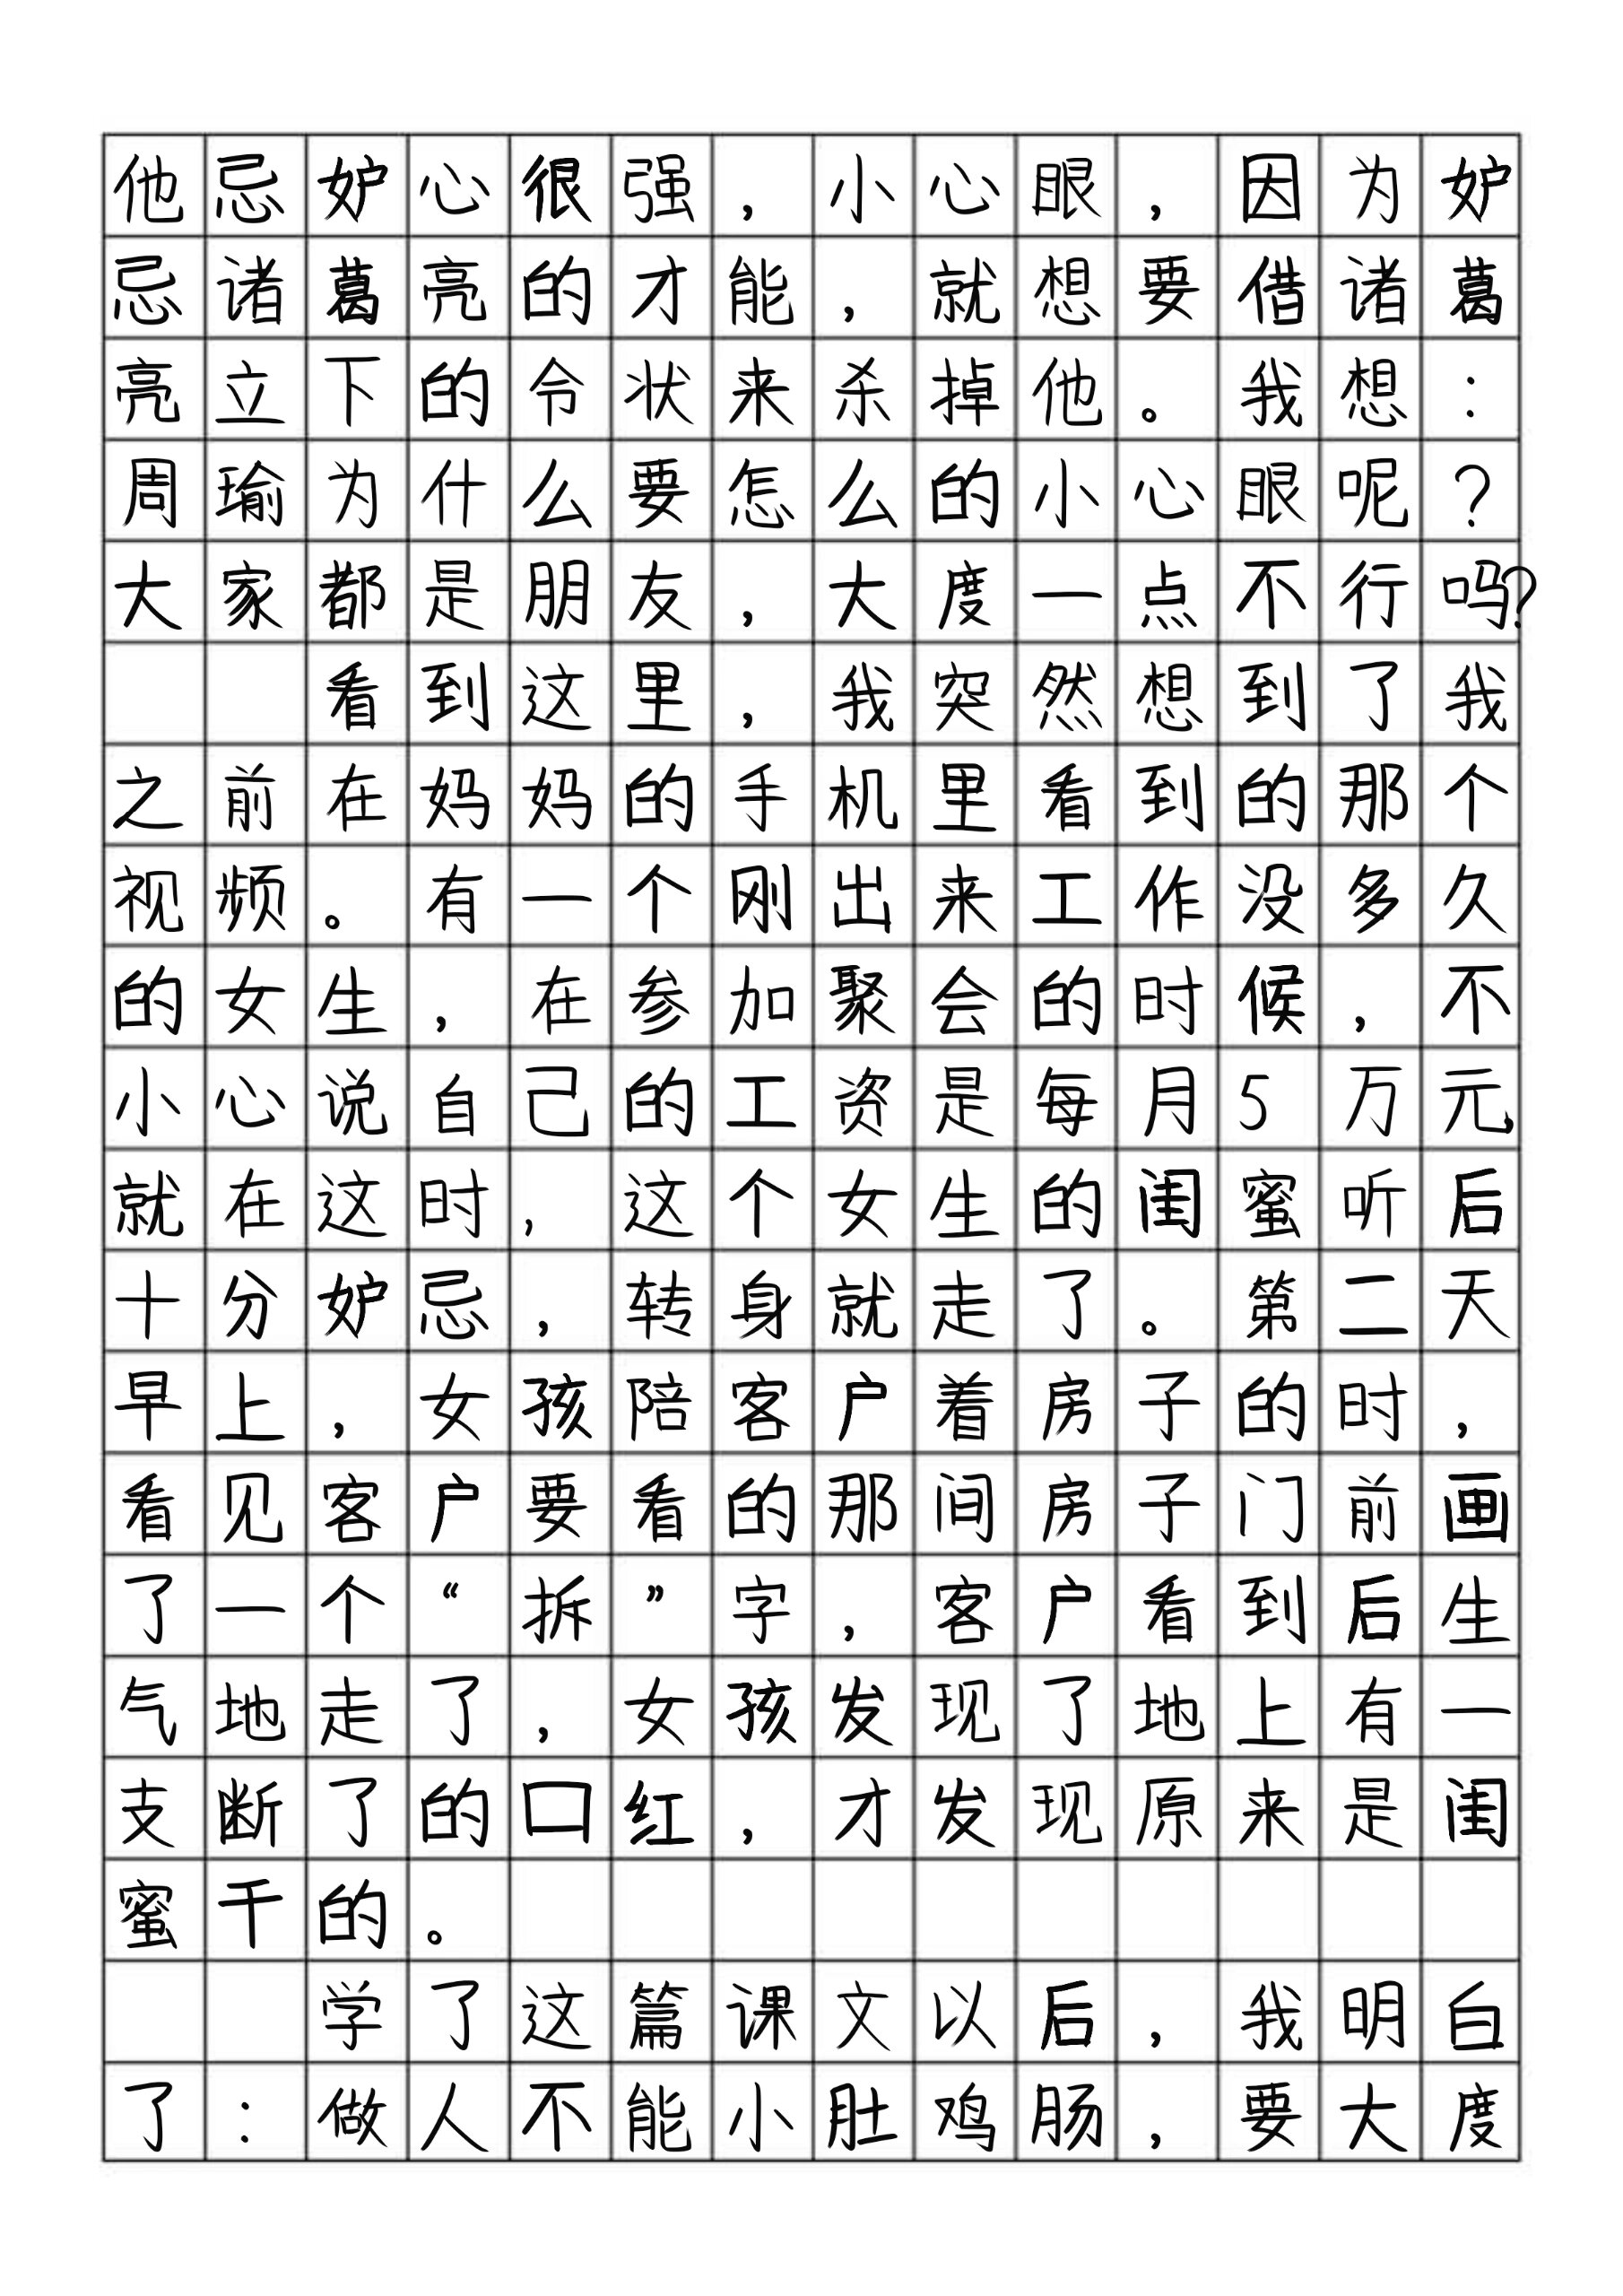 他忌妒心很强，小心眼，因为妒
忌诸葛亮的才能，就想要借诸葛
亮立下的令状来杀掉他。我想：
周瑜为什么要怎么的小心眼呢？
大家都是朋友，大度一点不行吗？
看到这里，我突然想到了我
之前在妈妈的手机里看到的那个
视频。有一个刚出来工作没多久
的女生，在参加聚会的时候，不
小心说自己的工资是每月5万元，
就在这时，这个女生的闺蜜听后
十分妒忌，转身就走了。第二天
早上，女孩陪客户着房子的时，
看见客户要看的那间房子门前画
了一个“拆”字，客户看到后生
气地走了，女孩发现了地上有一
支断了的口红，才发现原来是闺
蜜干的。
学了这篇课文以后，我明白
了：做人不能小肚鸡肠，要大度